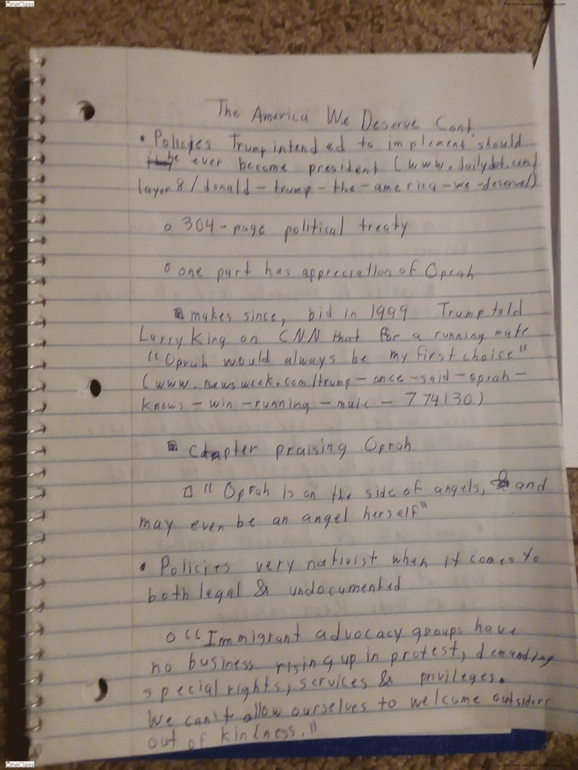 The America We Deserve Cont.
• Policies Trump intended to implement should
he ever become president (www.dailydot.com/
layer8/donald-trump-the-america-we-deserve/)
o 304-page political treaty
o one part has appreciation of Oprah
makes since, bid in 1999 Trump told
Larry King on CNN that for a running mate
"Oprah would always be my first choice"
(www.newsweek.com/trump-once-said-oprah-
knows-win-running-mate-774130)
Chapter praising Oprah
"Oprah is on the side of angels, and
may even be an angel herself"
• Policies very nativist when it comes to
both legal & undocumented
o "Immigrant advocacy groups have
no business rising up in protest, demanding
special rights, services & privileges.
We can't allow ourselves to welcome outsiders
out of kindness."